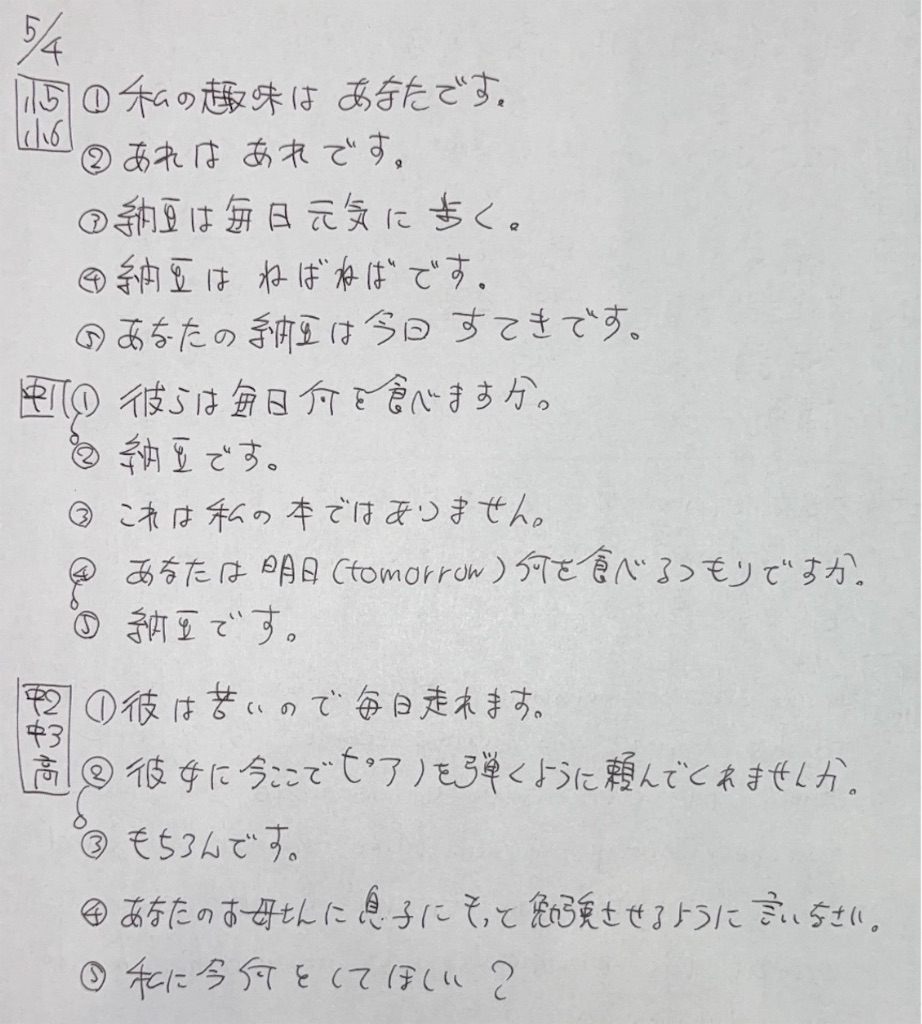 5/4
小5 小6 ① 私の趣味は あなたです。
② あれは あれです。
③ 納豆は毎日元気に 歩く。
④ 納豆は ねばねばです。
⑤ あなたの納豆は今日 すてきです。
中1 ① 彼らは毎日何を食べますか。
② 納豆です。
③ これは私の本ではありません。
④ あなたは明日(tomorrow)何を食べるつもりですか。
⑤ 納豆です。
中2 中3 高 ① 彼は苦いので毎日走れます。
② 彼女に今ここでピアノを弾くように頼んでくれませんか。
③ もちろんです。
④ あなたのお母さんに息子にもって勉強させるように言いなさい。
⑤ 私に今何をしてほしい?